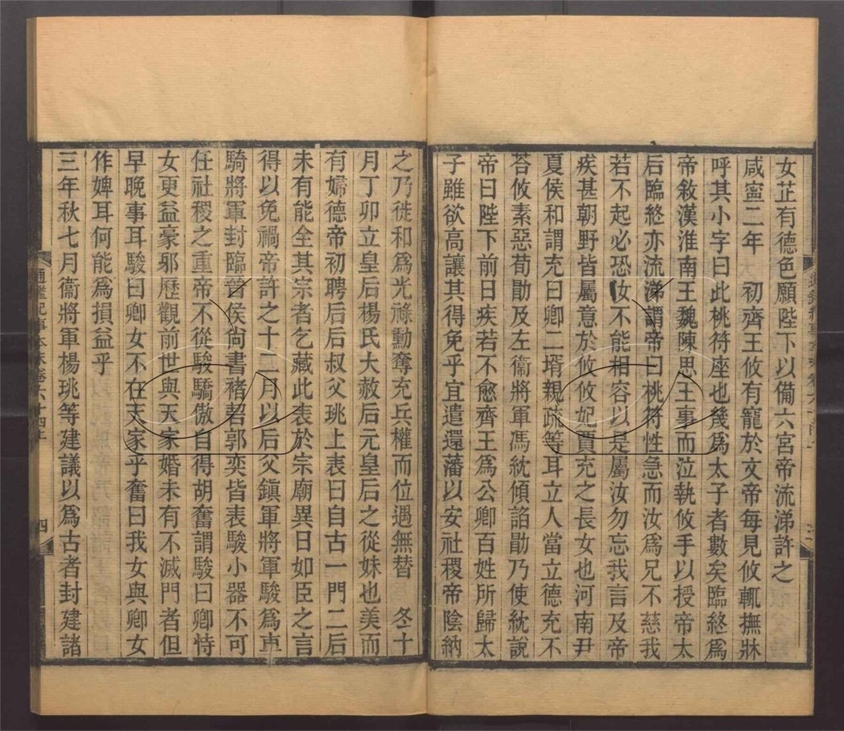 女芷有德色願陛下以備六宮帝流涕許之
咸寧二年　初齊王攸有寵於文帝每見攸輒撫牀
呼其小字曰此桃符座也幾爲太子者數矣臨終爲
帝敘漢淮南王魏陳思王事而泣執攸手以授帝太
后臨終亦流涕謂帝曰桃符性急而汝爲兄不慈我
若不起必恐汝不能相容以是屬汝勿忘我言及帝
疾甚朝野皆屬意於攸攸妃賈充之長女也河南尹
夏侯和謂充曰卿二壻親疏等耳立人當立德充不
荅攸素惡荀勖及左衞將軍馮紞傾諂勖乃使紞說
帝曰陛下前日疾若不愈齊王爲公卿百姓所歸太
子雖欲高讓其得免乎宜遣還藩以安社稷帝陰納
之乃徙和爲光祿勳奪充兵權而位遇無替　冬十
月丁卯立皇后楊氏大赦后元皇后之從妹也美而
有婦德帝初聘后后叔父珧上表曰自古一門二后
未有能全其宗者乞藏此表於宗廟異日如臣之言
得以免禍帝許之十二月以后父鎮軍將軍駿爲車
騎將軍封臨晉侯尙書褚䂮郭奕皆表駿小器不可
任社稷之重帝不從駿驕傲自得胡奮謂駿曰卿恃
女更益豪邪歷觀前世與天家婚未有不滅門者但
早晚事耳駿曰卿女不在天家乎奮曰我女與卿女
作婢耳何能爲損益乎
三年秋七月衞將軍楊珧等建議以爲古者封建諸
通鑑紀事本末卷六十四上
四